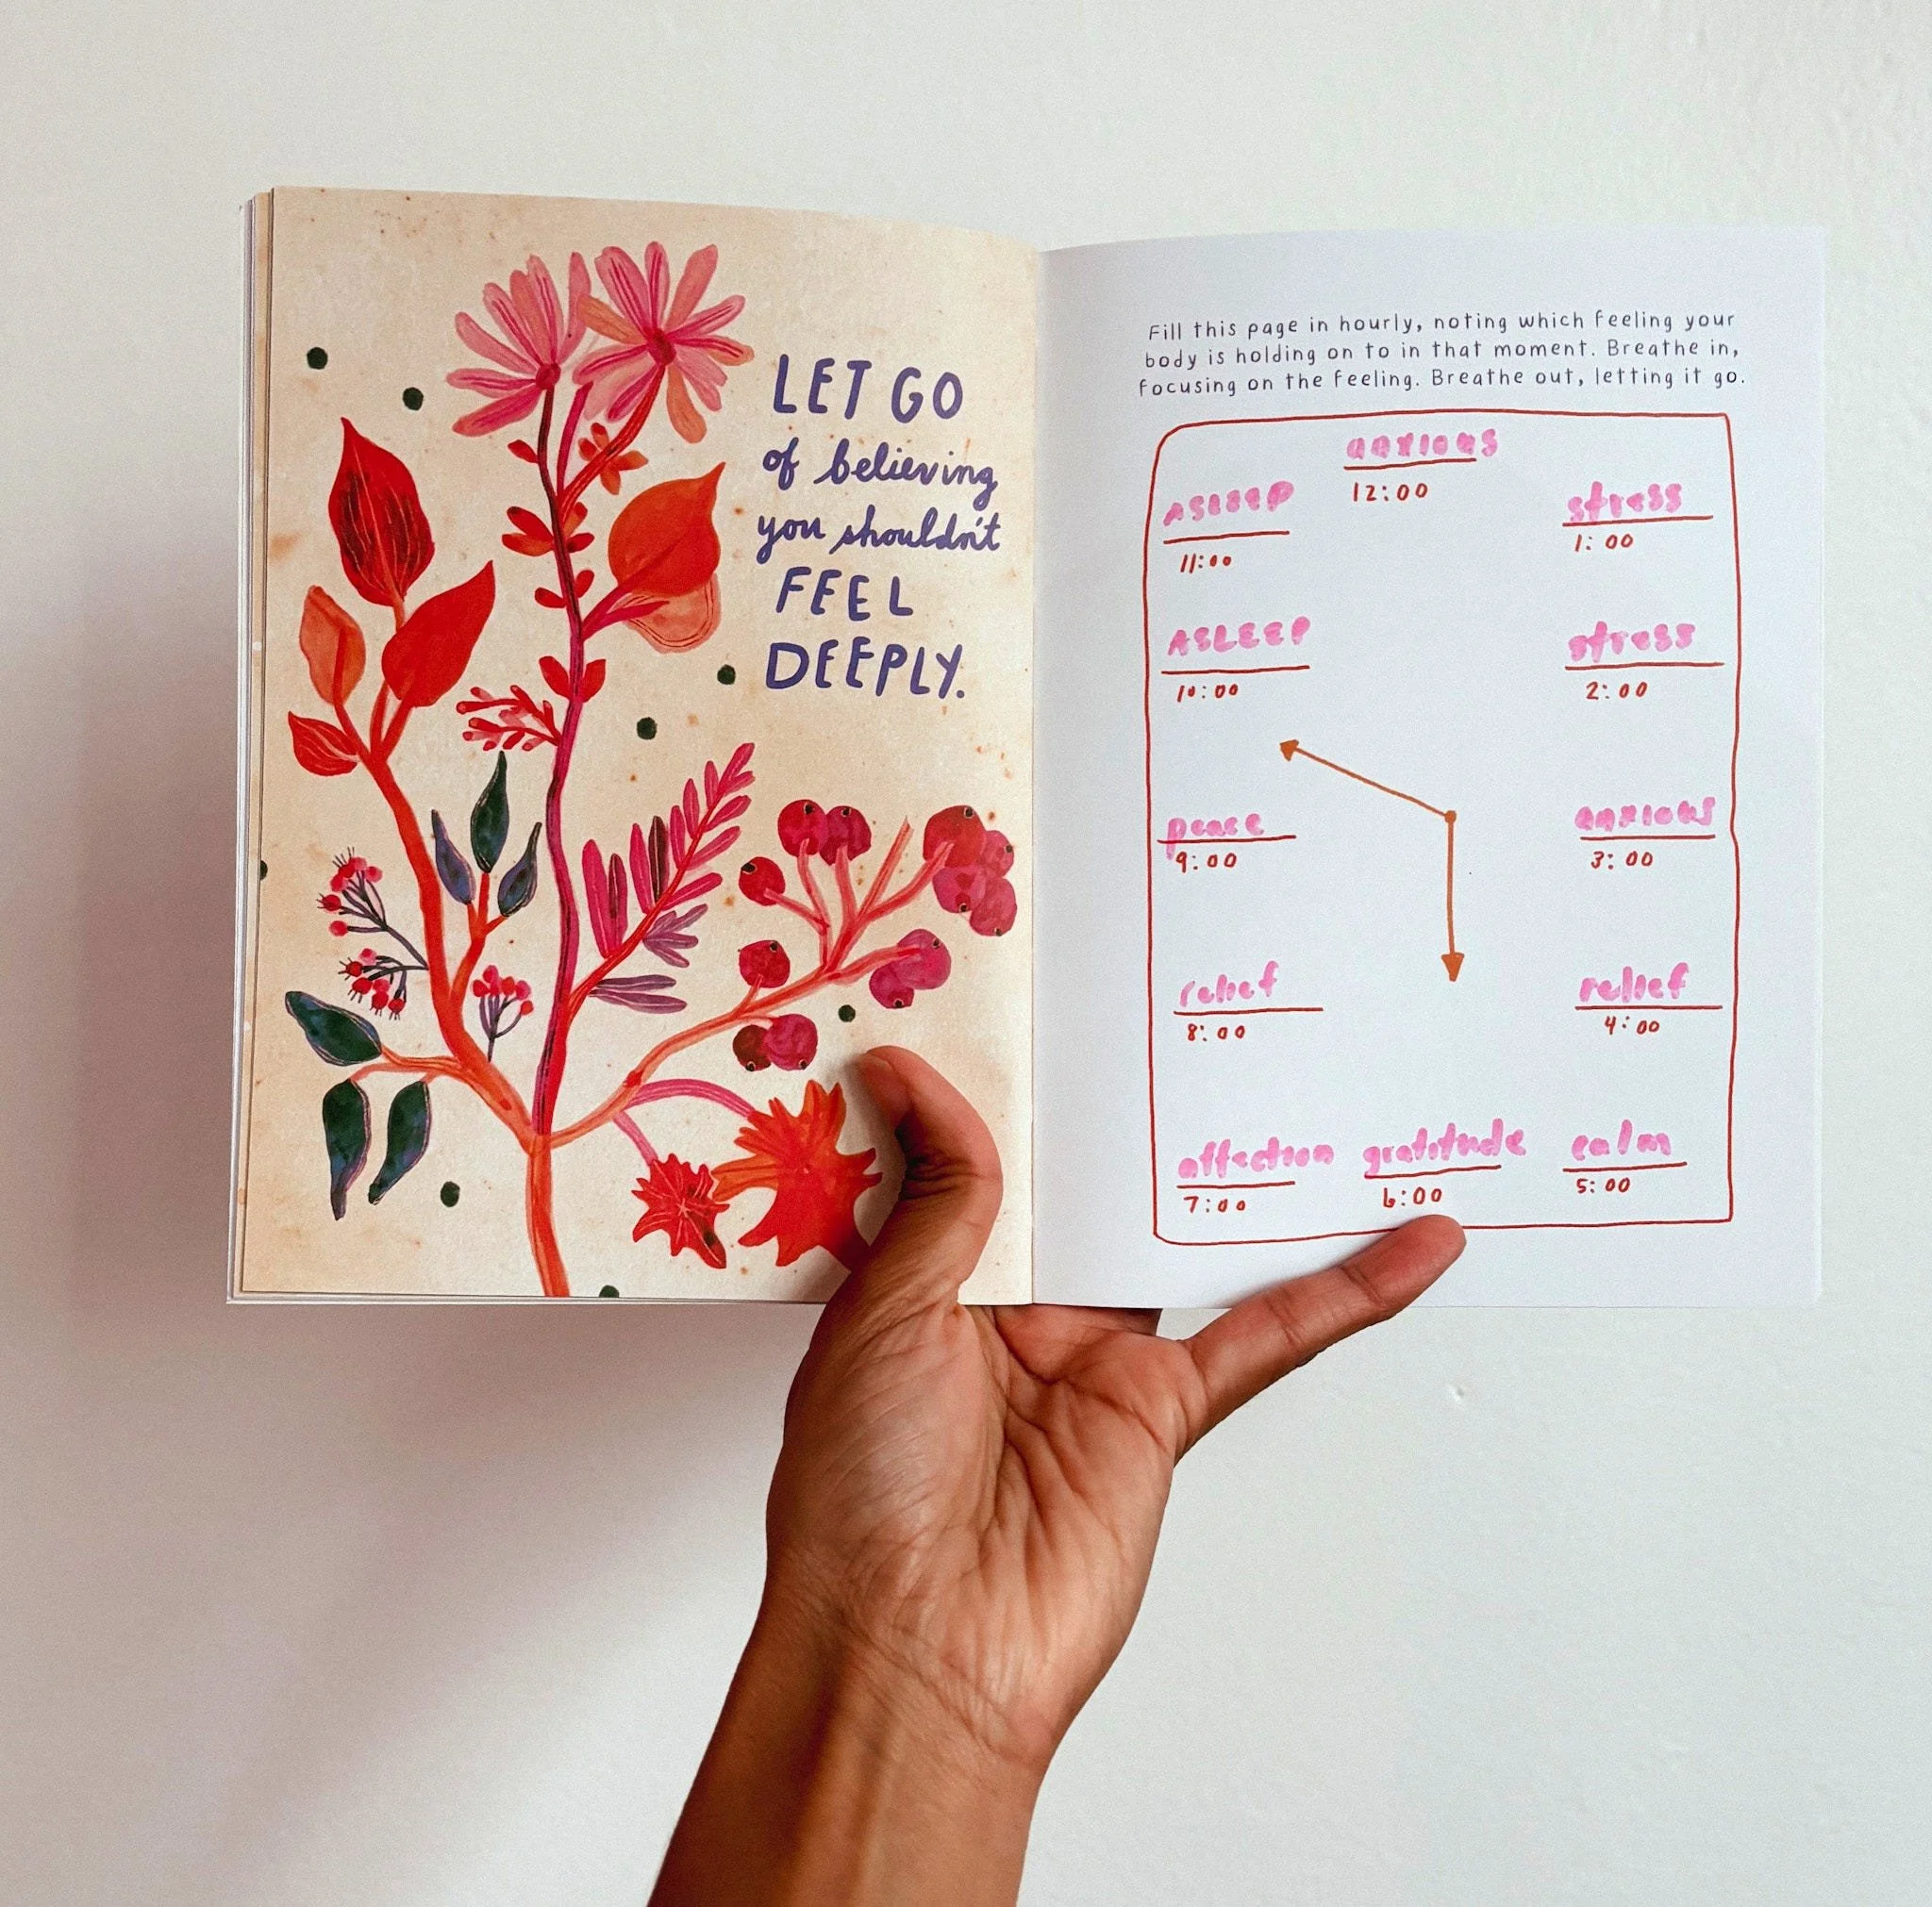 LET GO
of believing
you shouldn't
FEEL
DEEPLY.
Fill this page in hourly, noting which feeling your
body is holding on to in that moment. Breathe in,
focusing on the feeling. Breathe out, letting it go.
anxious
12:00
stress
1:00
stress
2:00
anxious
3:00
relief
4:00
calm
5:00
gratitude
6:00
affection
7:00
relief
8:00
peace
9:00
ASLEEP
10:00
ASLEEP
11:00